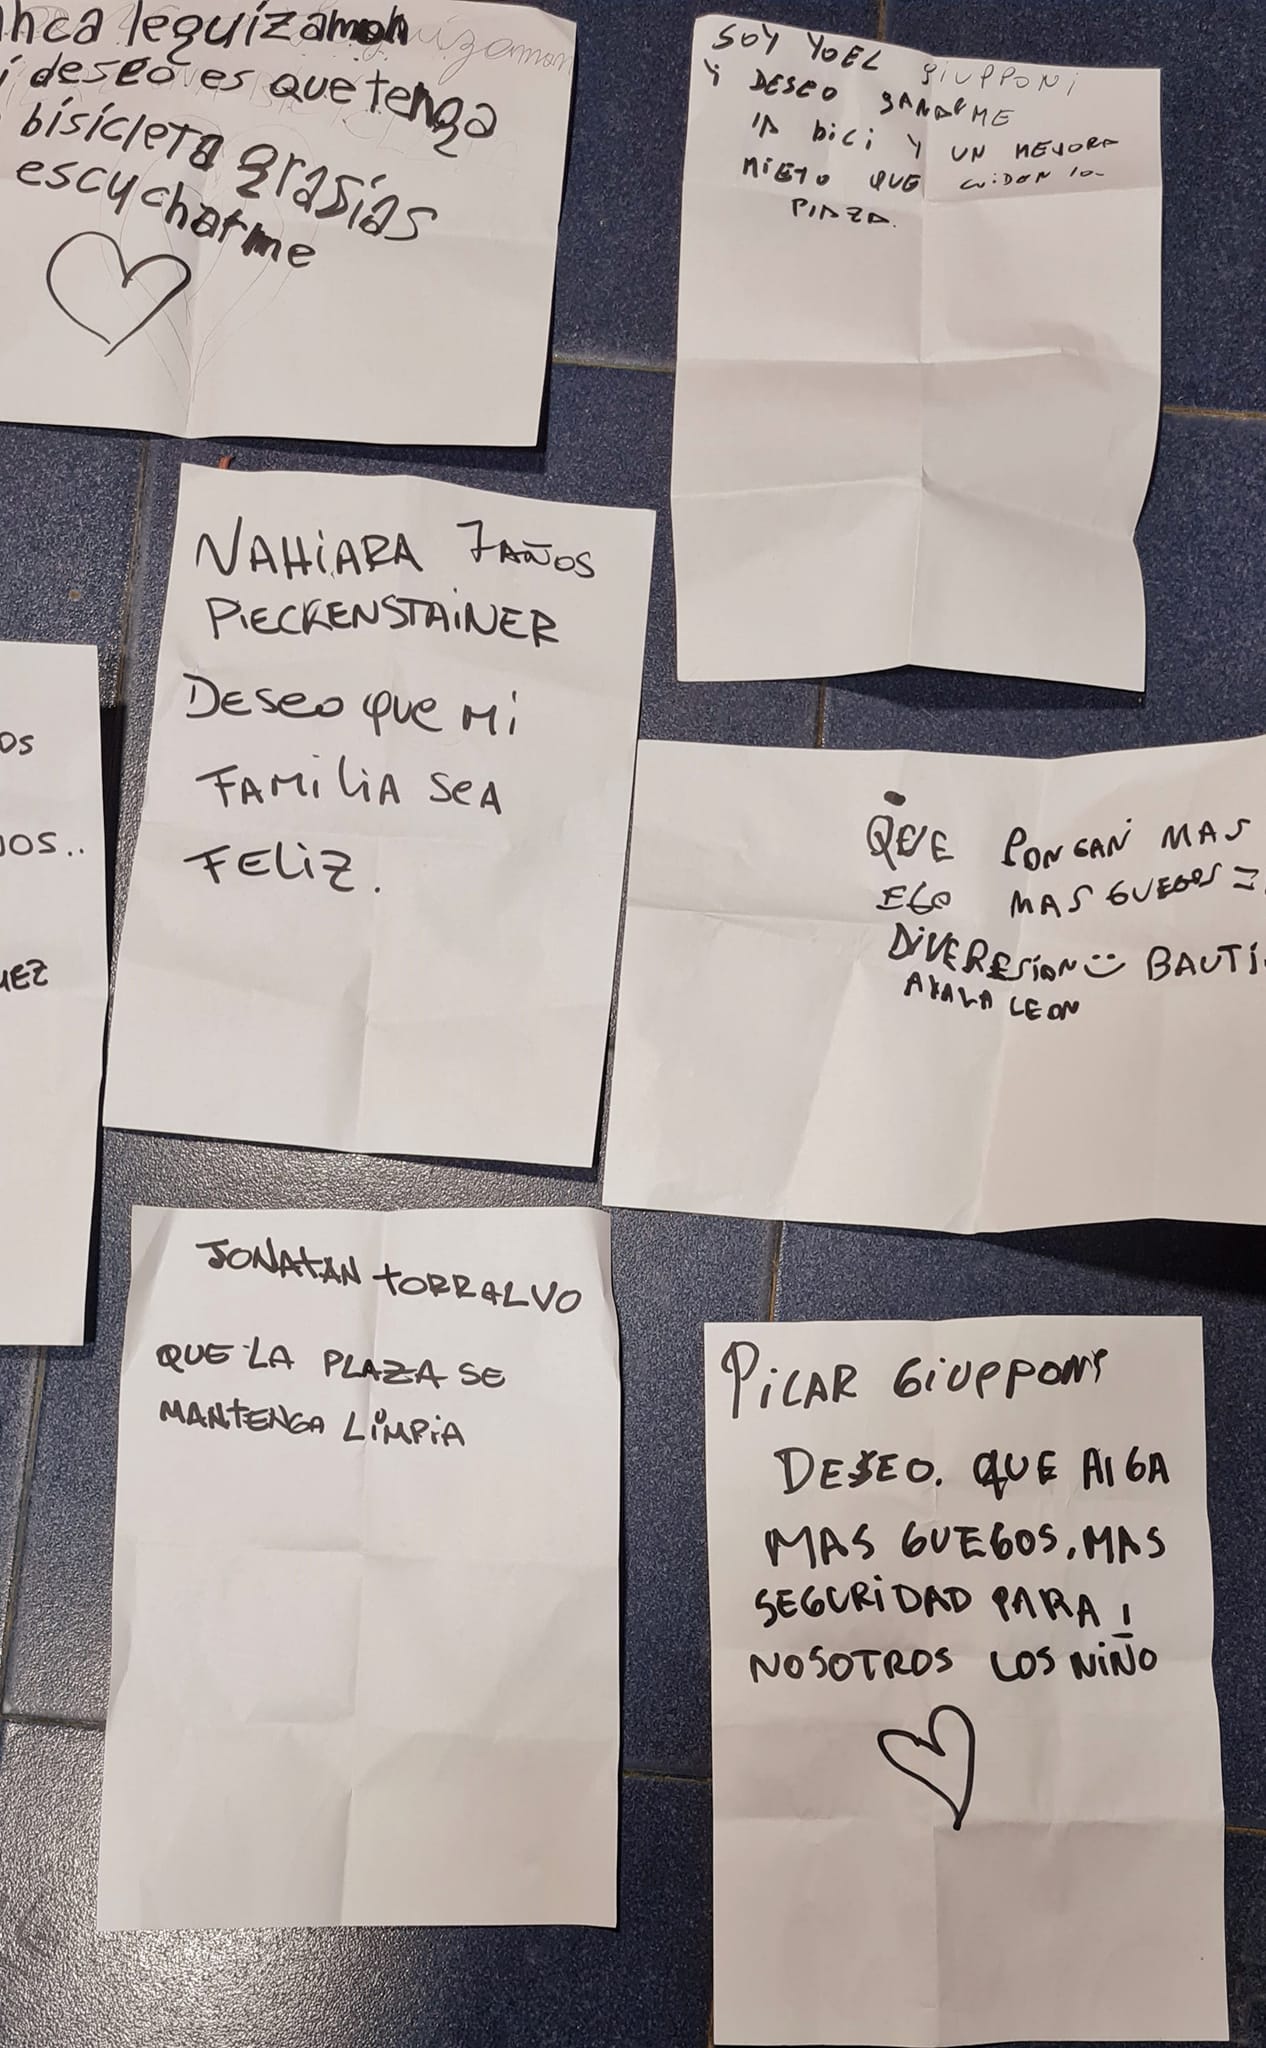 nca leguizamon
i deseo es que tenga
bisicleta grasias
escucharme
SOY YOEL GIUPPONI
Y DESEO GANARME
LA BICI Y UN MEJORA
MIETO QUE CUIDEN LA
PLAZA.
NAHIARA 7 AÑOS
PIECKENSTAINER
DESEO QUE MI
FAMILIA SEA
FELIZ.
OS
JOS..
UEZ
QUE PONGAN MAS
EGO MAS GUEGOS =
DIVERESION BAUTI
AYALA LEON
JONATAN TORRALVO
QUE LA PLAZA SE
MANTENGA LIMPIA
PILAR GIUPPONI
DESEO. QUE AIGA
MAS GUEGOS, MAS
SEGURIDAD PARA
NOSOTROS LOS NIÑO